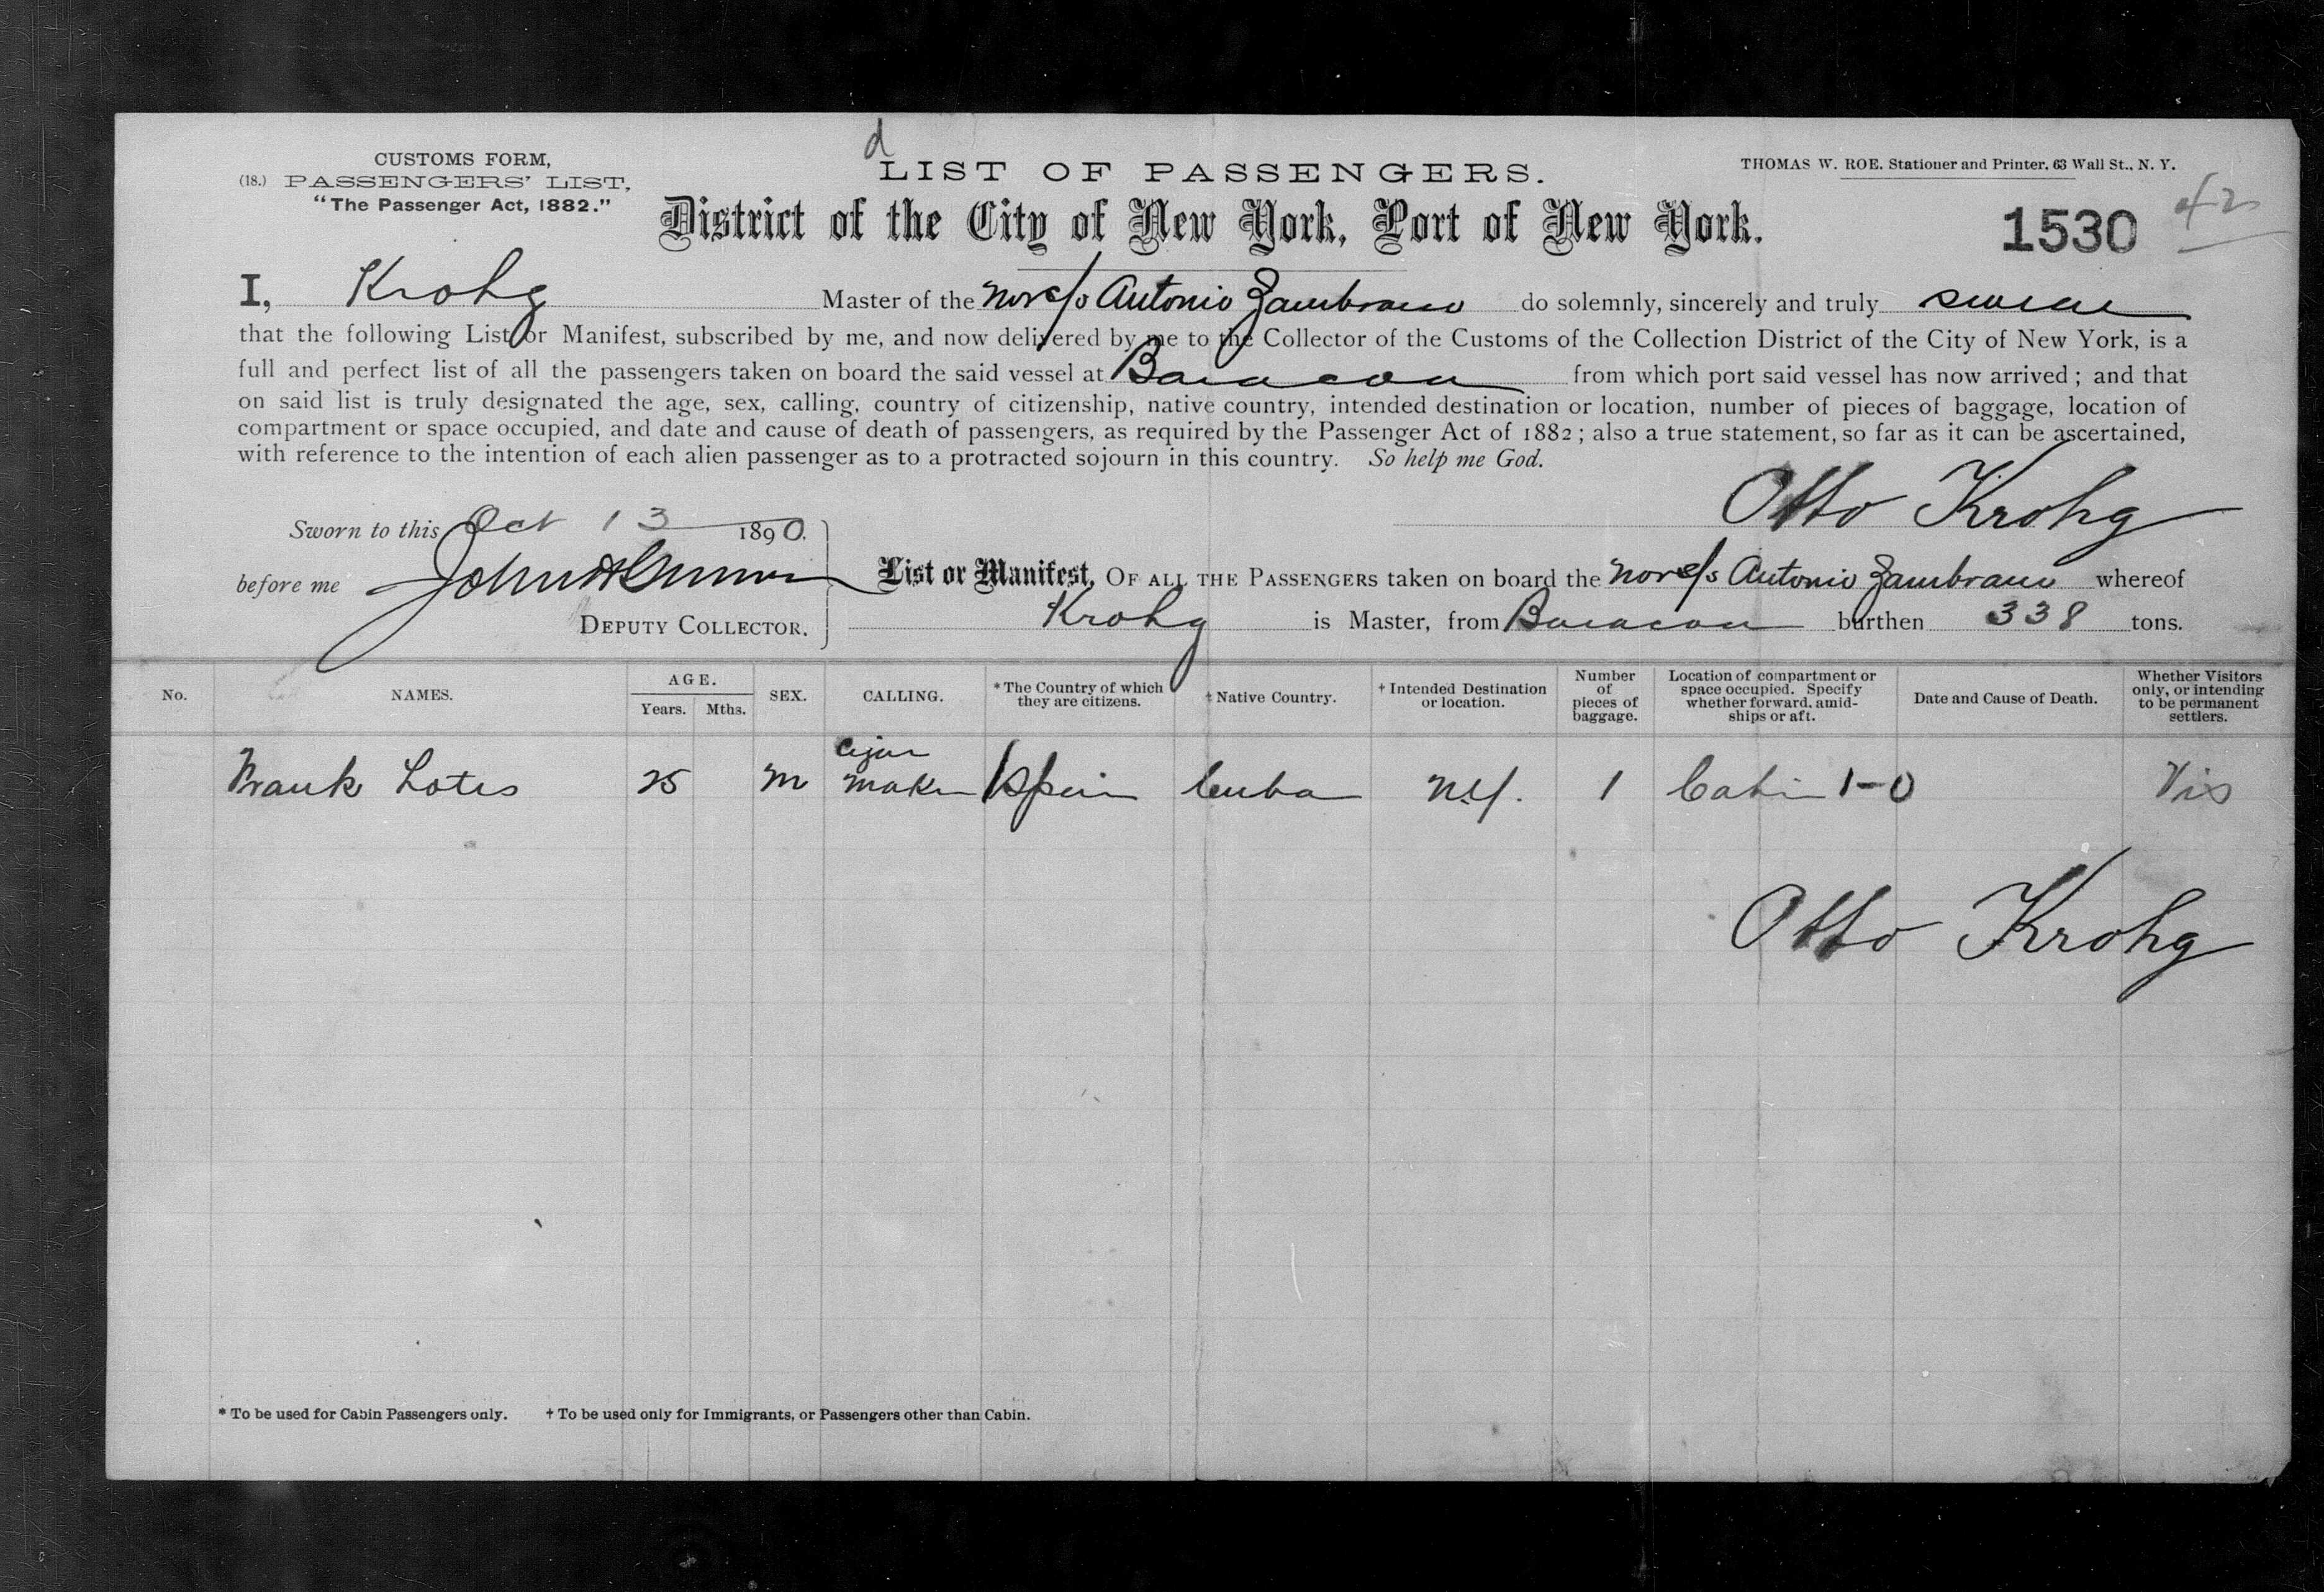 d
CUSTOMS FORM,
(18.) PASSENGERS' LIST,
"The Passenger Act, 1882."
LIST OF PASSENGERS.
THOMAS W. ROE. Stationer and Printer, 63 Wall St., N. Y.
District of the City of New York, Port of New York.
1530
42
I, Krohg Master of the Nor s/s Antonio Zambrano do solemnly, sincerely and truly swear
that the following List or Manifest, subscribed by me, and now delivered by me to the Collector of the Customs of the Collection District of the City of New York, is a
full and perfect list of all the passengers taken on board the said vessel at Baracoa from which port said vessel has now arrived; and that
on said list is truly designated the age, sex, calling, country of citizenship, native country, intended destination or location, number of pieces of baggage, location of
compartment or space occupied, and date and cause of death of passengers, as required by the Passenger Act of 1882; also a true statement, so far as it can be ascertained,
with reference to the intention of each alien passenger as to a protracted sojourn in this country. So help me God.
Otto Krohg
Sworn to this Oct 13 1890.
before me John
DEPUTY COLLECTOR.
List or Manifest, OF ALL THE PASSENGERS taken on board the Nor s/s Antonio Zambrano whereof
Krohg is Master, from Baracoa burthen 338 tons.
No. NAMES. AGE. Years. Mths. SEX. CALLING. * The Country of which they are citizens. † Native Country. † Intended Destination or location. Number of pieces of baggage. Location of compartment or space occupied. Specify whether forward, amid-ships or aft. Date and Cause of Death. Whether Visitors only, or intending to be permanent settlers.
Frank Lotes 25 M Cigar maker Spain Cuba N.Y. 1 Cabin 1-0 Vis
Otto Krohg
* To be used for Cabin Passengers only. † To be used only for Immigrants, or Passengers other than Cabin.